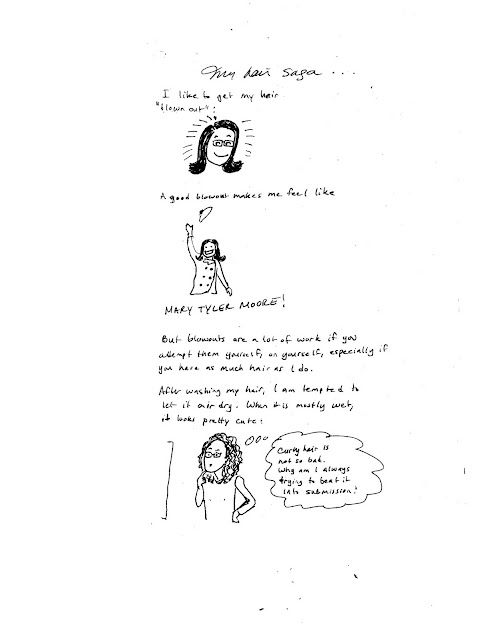 my hair saga ...
I like to get my hair
"blown out":
A good blowout makes me feel like
MARY TYLER MOORE!
But blowouts are a lot of work if you
attempt them yourself, on yourself, especially if
you have as much hair as I do.
After washing my hair, I am tempted to
let it air dry. When it is mostly wet,
it looks pretty cute!
Curly hair is
not so bad.
Why am I always
trying to beat it
into submission?